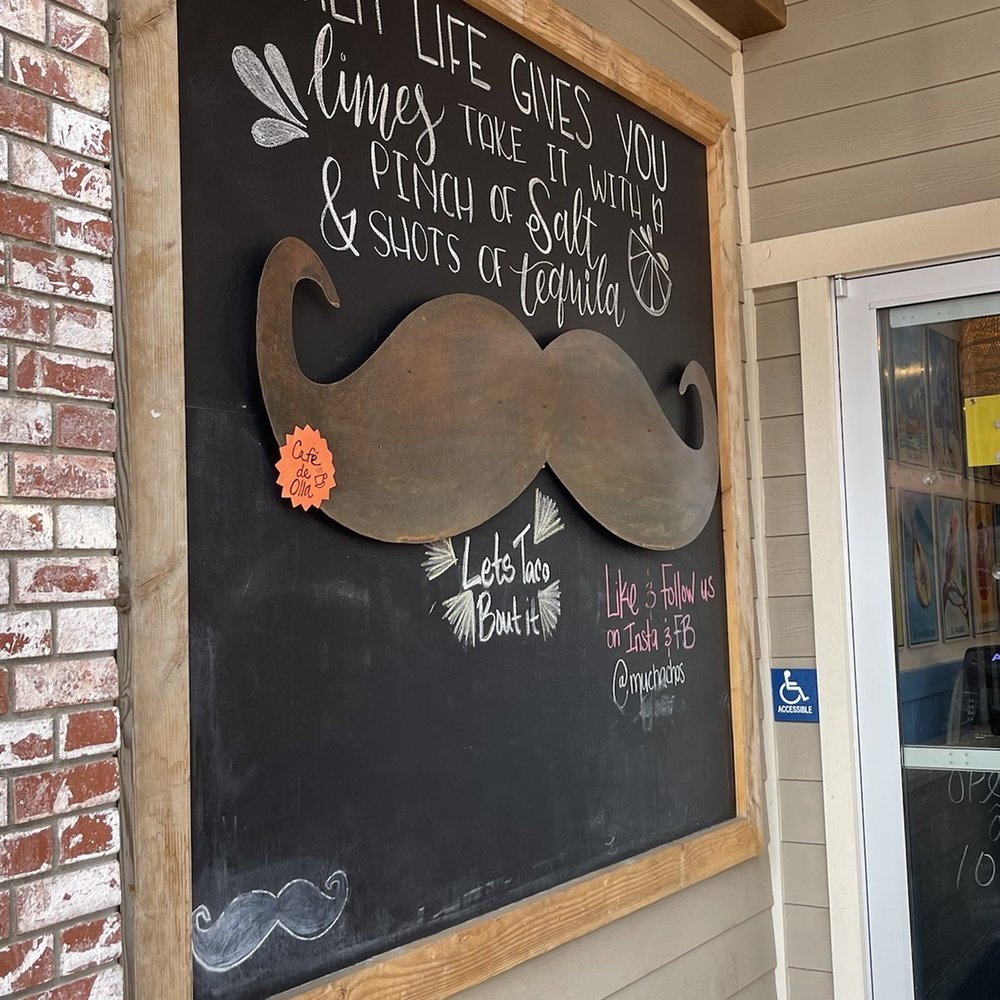 LIFE GIVES YOU
limes TAKE IT WITH A
PINCH OF Salt
& SHOTS OF tequila
Café
de
Olla
Lets Taco
Bout it
Like & Follow us
on Insta & FB
@muchachos
ACCESSIBLE